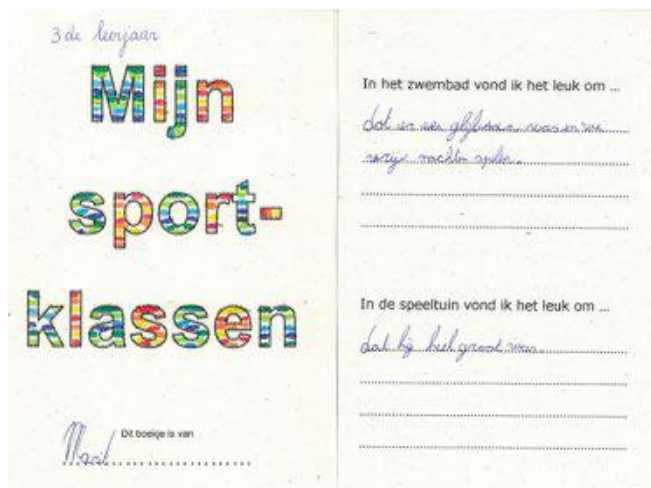 3de leerjaar
Mijn
sport-
klassen
Dit boekje is van
In het zwembad vond ik het leuk om ...
dat er een glijbaan was en we
mochten
In de speeltuin vond ik het leuk om ...
dat hij heel groot was.